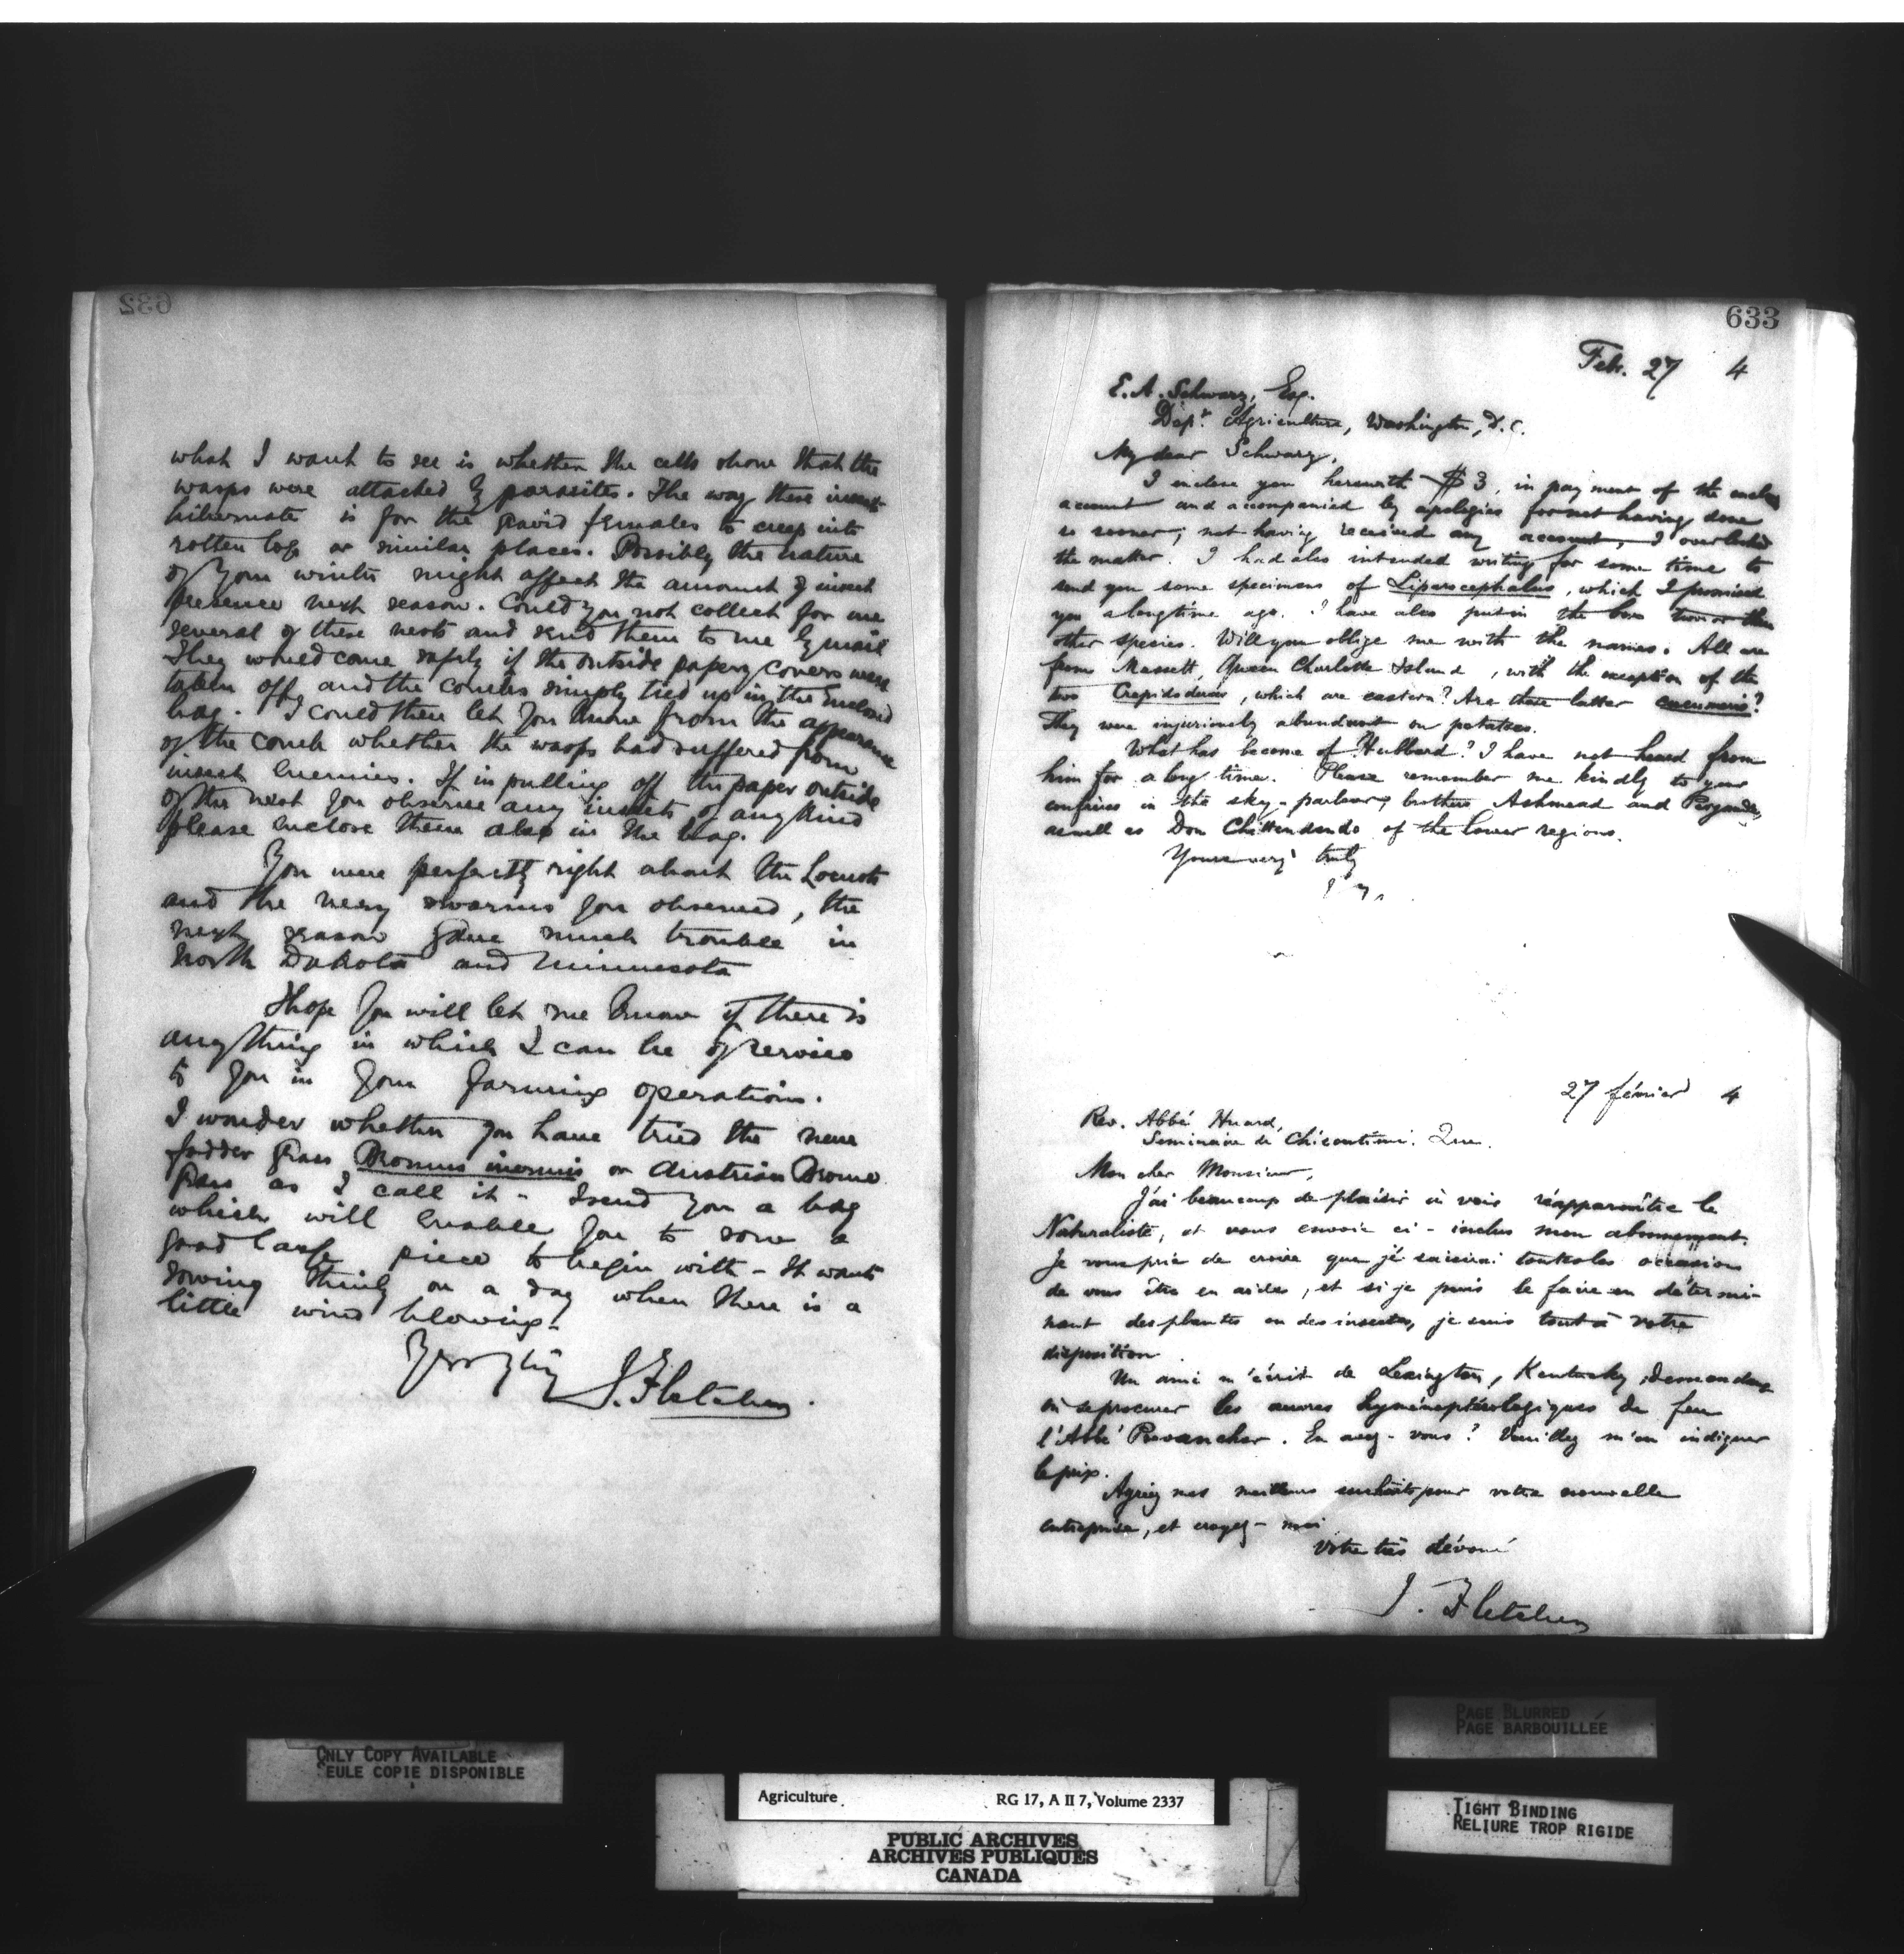 632
what I want to see is whether the cells show that the
wasps were attacked by parasites. The way these insects
hibernate is for the gravid females to creep into
rotten logs or similar places. Possibly the nature
of your winter might affect the amount of insect
presence next season. Could you not collect for me
several of these nests and send them to me by mail
They would come safely if the outside papery covers were
taken off and the combs simply tied up in the enclosed
bag. I could then let you know from the appearance
of the comb whether the wasps had suffered from
insect enemies. If in pulling off the paper outside
of the nest you observe any insects of any kind
please inclose them also in the bag.
You were perfectly right about the Locusts
and the very swarms you observed, the
next season gave much trouble in
North Dakota and Minnesota
I hope you will let me know if there is
anything in which I can be of service
to you in your farming operations.
I wonder whether you have tried the new
fodder grass Bromus inermis or Austrian Brome
grass as I call it - I send you a bag
which will enable you to sow a
good large piece to begin with - It wants
sowing thinly on a day when there is a
little wind blowing.
J. Fletcher.
633
Feb. 27 4
E. A. Schwarz, Esq.
Dept. Agriculture, Washington, D.C.
My dear Schwarz,
I inclose you herewith $3, in payment of the enclosed
account and accompanied by apologies for not having done
so sooner; not having received any account, I overlooked
the matter. I had also intended writing for some time to
send you some specimens of Liparocephalus, which I promised
you a long time ago. I have also put in the box two or three
other species. Will you oblige me with the names. All are
from Massett, Queen Charlotte Island, with the exception of the
two Crepidoderas, which are eastern? Are these latter cucumeris?
They were injuriously abundant on potatoes.
What has become of Hubbard? I have not heard from
him for a long time. Please remember me kindly to your
confrères in the sky-parlour, brothers Ashmead and Pergande,
as well as Don Chittendendo of the lower regions.
Yours very truly
27 février 4
Rev. Abbé Huard,
Seminaire de Chicoutimi. Que.
Mon cher Monsieur,
J'ai beaucoup de plaisir à voir réapparaître le
Naturaliste, et vous envoie ci-inclus mon abonnement.
Je vous prie de croire que je saisirai toutes les occasions
de vous être en aide, et si je puis le faire en détermi-
nant des plantes ou des insectes, je suis tout à votre
disposition
Un ami m'écrit de Lexington, Kentucky, demandant
où se procurer les œuvres hyménoptérologiques du feu
l'Abbé Provancher. En avez-vous? Veuillez m'en indiquer
le prix.
Agréez mes meilleurs souhaits pour votre nouvelle
entreprise, et croyez-moi
Votre très dévoué
J. Fletcher
ONLY COPY AVAILABLE
SEULE COPIE DISPONIBLE
Agriculture RG 17, A II 7, Volume 2337
PUBLIC ARCHIVES
ARCHIVES PUBLIQUES
CANADA
PAGE BLURRED
PAGE BARBOUILLÉE
TIGHT BINDING
RELIURE TROP RIGIDE